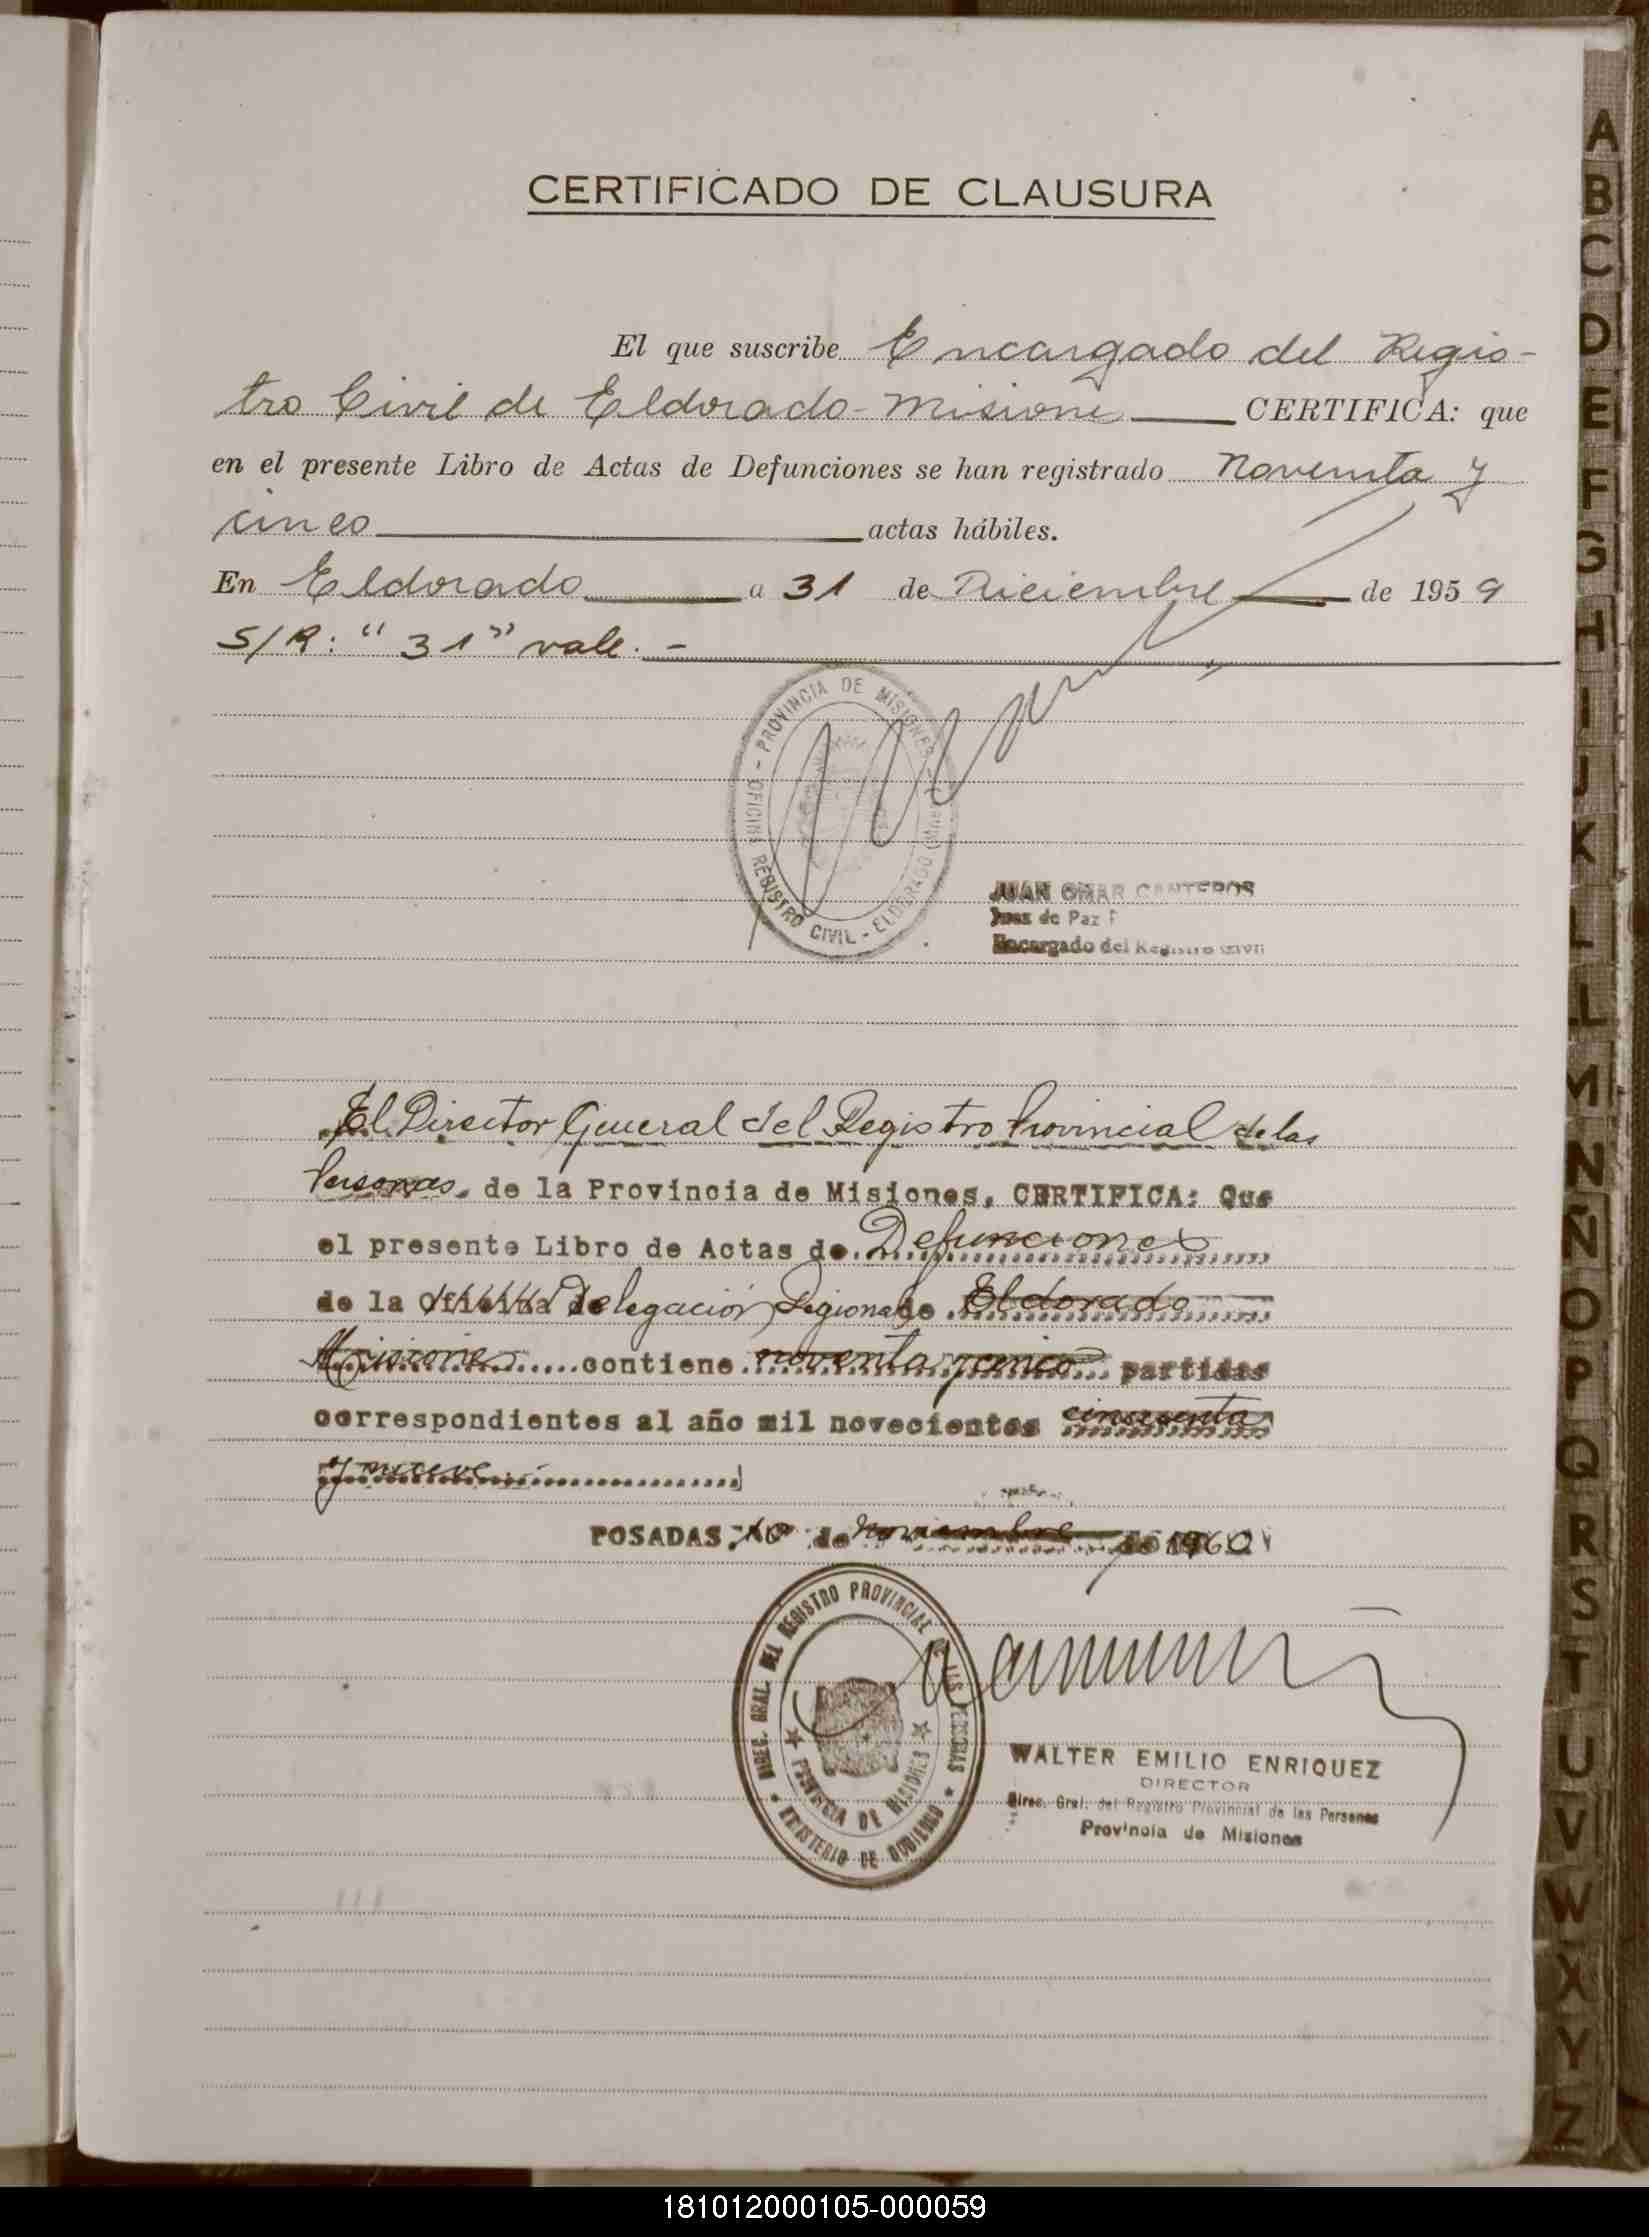 CERTIFICADO DE CLAUSURA
El que suscribe Encargado del Regis-
tro Civil de Eldorado - Misiones CERTIFICA: que
en el presente Libro de Actas de Defunciones se han registrado Noventa y
cinco actas hábiles.
En Eldorado a 31 de Diciembre de 1959
S/R: "31" vale. -
- PROVINCIA DE MISIONES -
OFICINA REGISTRO CIVIL - ELDORADO
JUAN OMAR CANTEROS
Juez de Paz
Encargado del Registro Civil
El Director General del Registro Provincial de las
Personas, de la Provincia de Misiones, CERTIFICA: Que
el presente Libro de Actas de Defunciones
de la Delegación Regional de Eldorado
Misiones contiene noventa y cinco partidas
correspondientes al año mil novecientos cincuenta
y nueve.
POSADAS, 10 de Noviembre de 1960
DIREC. GRAL. DEL REGISTRO PROVINCIAL DE LAS PERSONAS
PROVINCIA DE MISIONES
MINISTERIO DE GOBIERNO
WALTER EMILIO ENRIQUEZ
DIRECTOR
Direc. Gral. del Registro Provincial de las Personas
Provincia de Misiones
A
B
C
D
E
F
G
H
I
J
K
L
LL
M
N
Ñ
O
P
Q
R
S
T
U
V
W
X
Y
Z
181012000105-000059